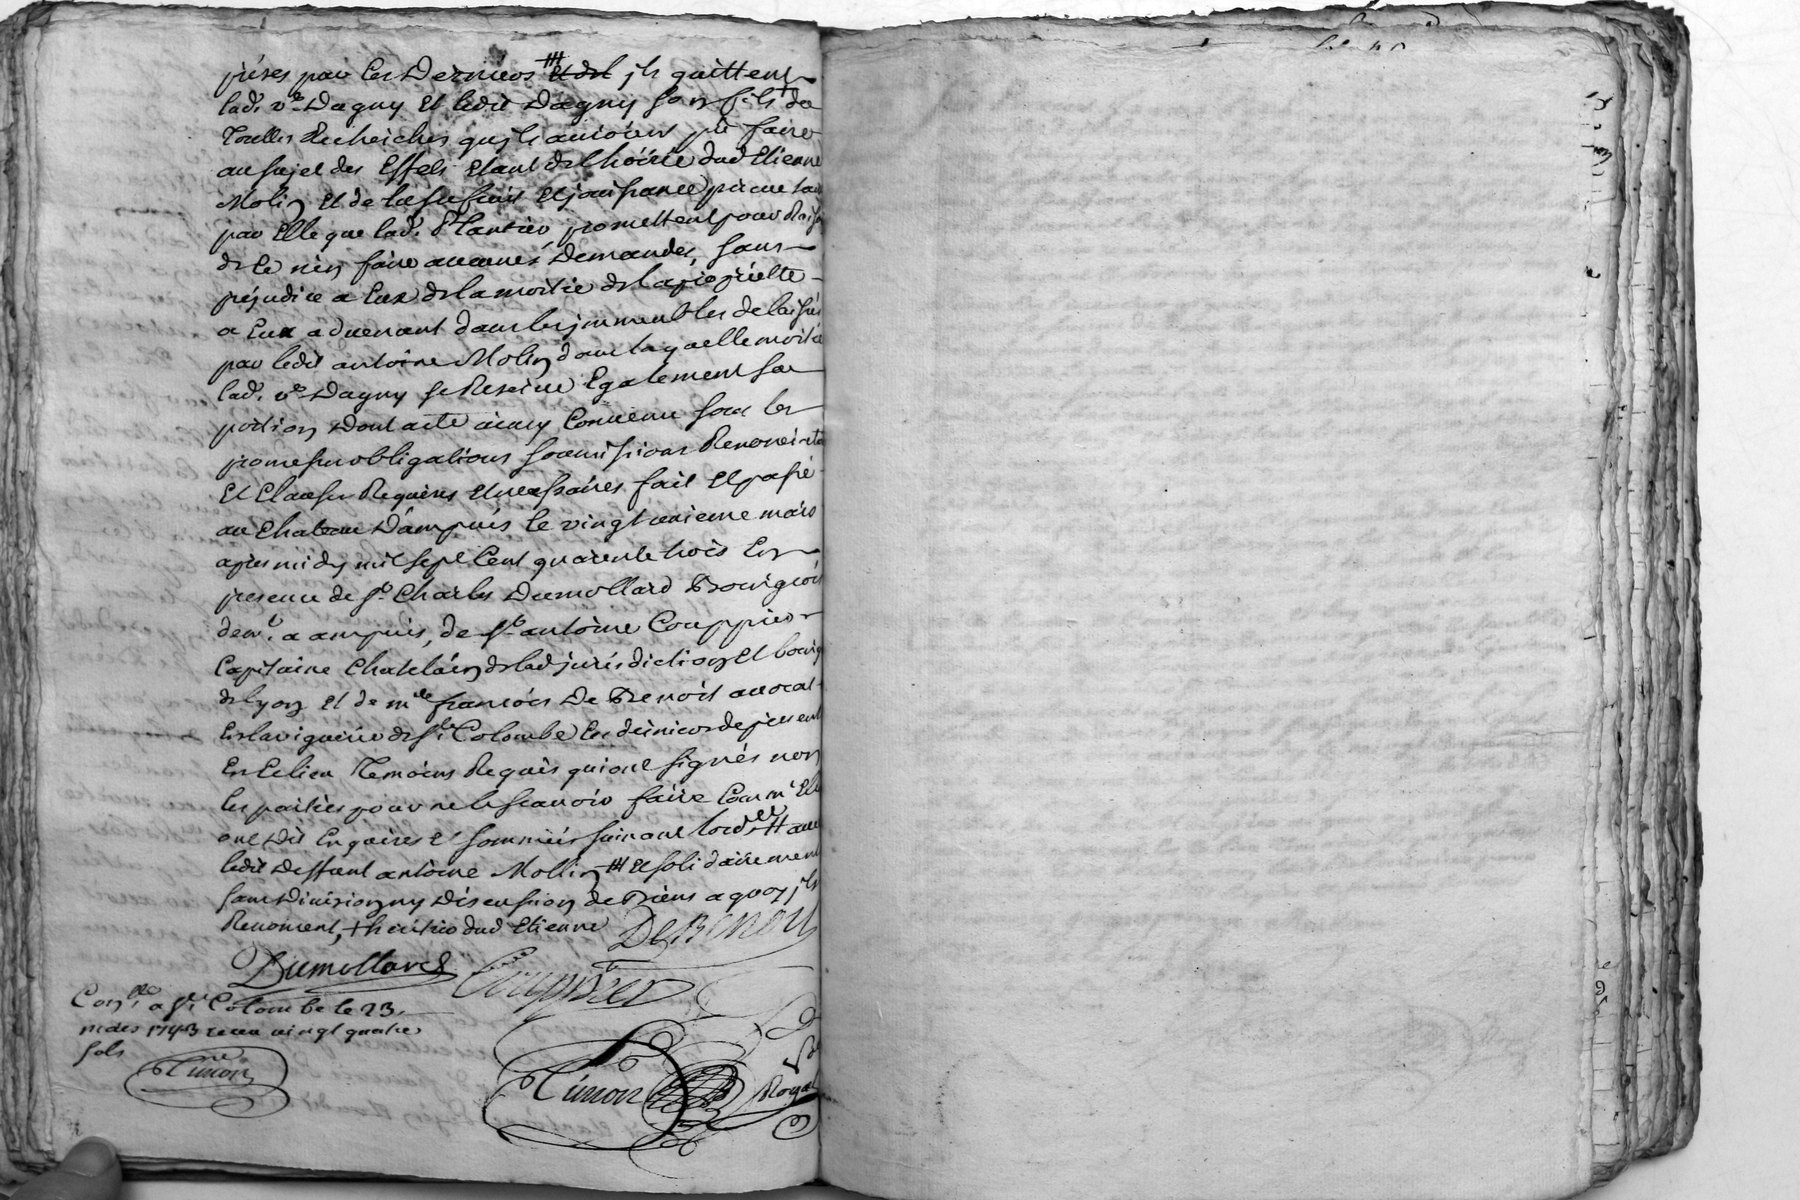 prises par les derniers # et de ils quittent
lad. ve Dagny et ledit Dagny son fils + de
Touttes Recherches quils auroient pû faire
au sujet des Effets Etant de lhoirie dud Etienne
Molin et de et jouissance
par Elle que lad. Plantier promettent pour
de ne faire aucunes Demandes, sans
préjudice a Eux de la moitié de la proprietté
a Eux advenant dans les immeubles delaissés
par ledit antoine Molin dans laquelle moitié
lad. ve Dagny se Reserve Egalement sa
portion dont acte ainsy Convenu sous les
promesses obligations soumissions
Et Clauses Requises et necessaires fait et passé
au Chateau Dampuis le vingt unieme mars
apres midy mil sept Cent quarente trois En
presence de sr. Charles Dumollard Bourgeois
demt. a ampuis, de sr. antoine Couppier
Capitaine Chatelain de lad jurisdiction et bourg
de lyon et de me françois De Benoit avocat
En la viguerie de ste Colombe Ce dernier de present
En Ce lieu Temoins Requis qui ont signés non
les parties pour ne le sçavoir faire Comm' Elles
ont dit Enquises et sommées suivant lordce # avec
ledit deffunt antoine Mollin # et solidairement
sans Division ny Discussion de Biens a quoy ils
Renoncent, + heritier dud Etienne DeBenoit
Dumollard Couppier
Conlé. a ste Colombe le 23.
mars 1743 receu vingt quatre
sols
Timon
Timon
Royal